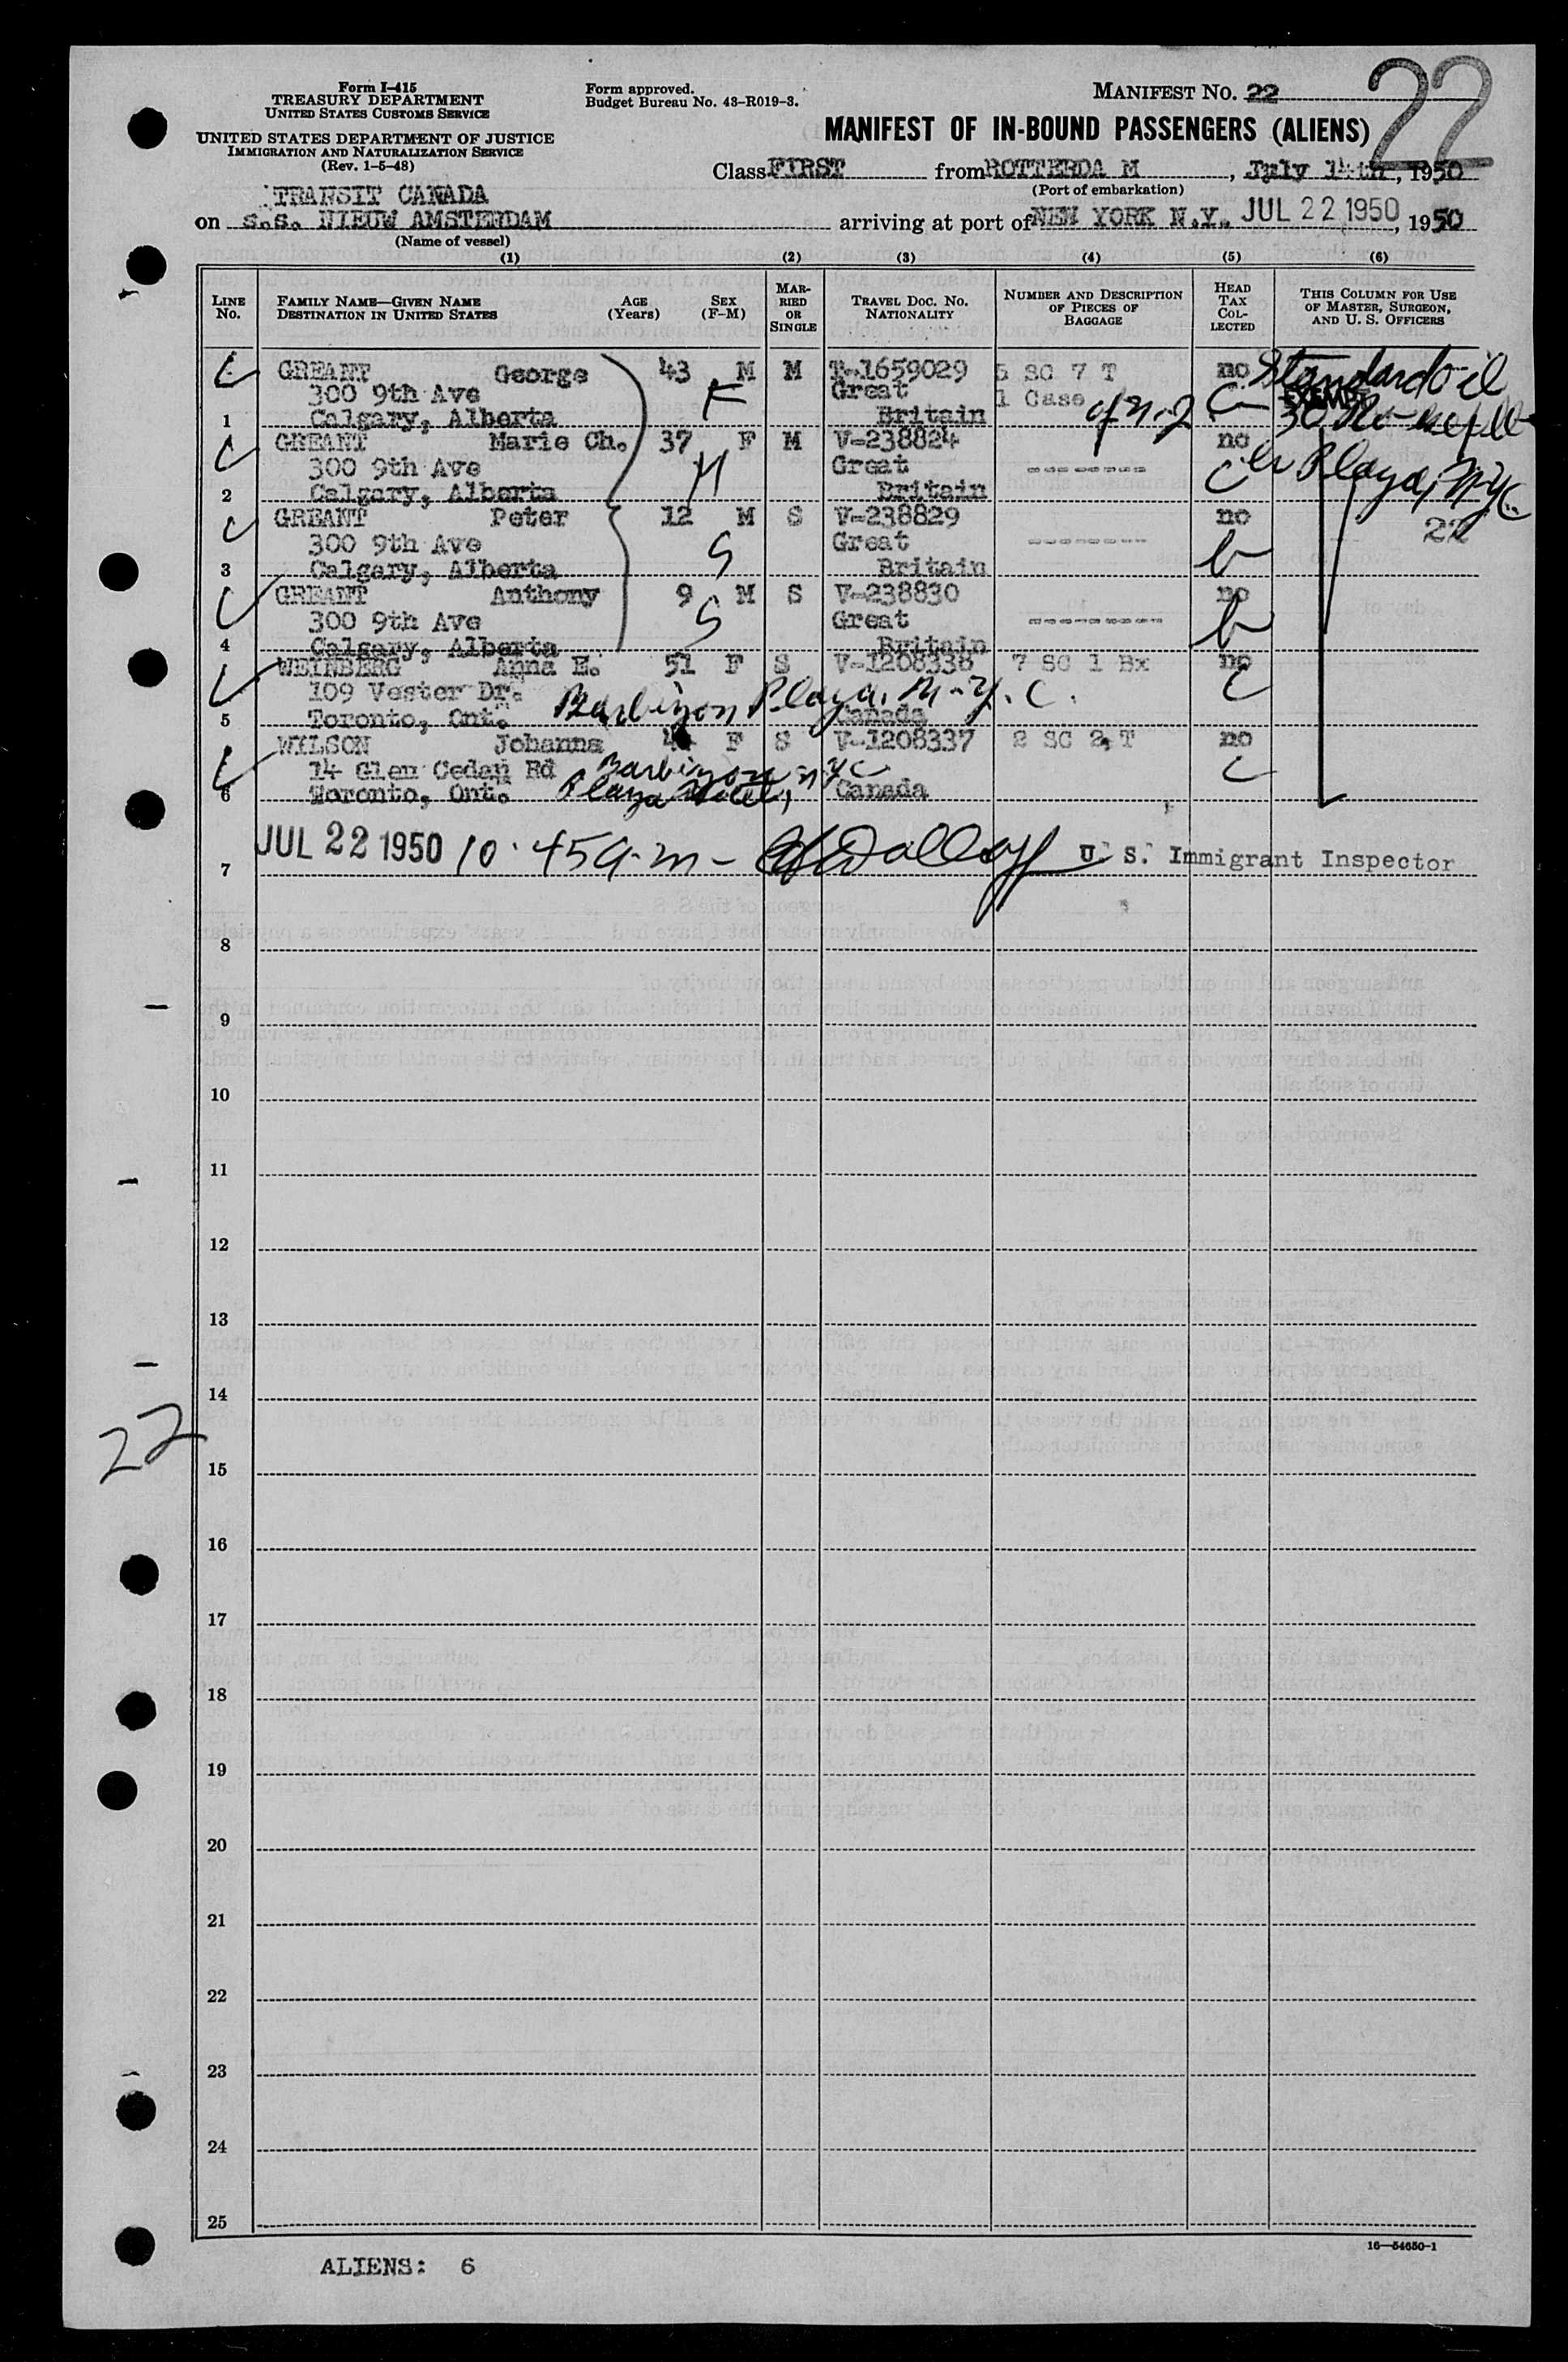 22
Form I-415
TREASURY DEPARTMENT
UNITED STATES CUSTOMS SERVICE
UNITED STATES DEPARTMENT OF JUSTICE
IMMIGRATION AND NATURALIZATION SERVICE
(Rev. 1-5-48)
Form approved.
Budget Bureau No. 43-R019-3.
MANIFEST NO. 22
MANIFEST OF IN-BOUND PASSENGERS (ALIENS)
Class FIRST from ROTTERDA M, July 14th, 1950
(Port of embarkation)
TRANSIT CANADA
on s.s. NIEUW AMSTERDAM arriving at port of NEW YORK N.Y. JUL 22 1950, 1950
(Name of vessel)
(1) (2) (3) (4) (5) (6)
LINE No. FAMILY NAME—GIVEN NAME DESTINATION IN UNITED STATES AGE (Years) SEX (F-M) MARRIED OR SINGLE TRAVEL DOC. NO. NATIONALITY NUMBER AND DESCRIPTION OF PIECES OF BAGGAGE HEAD TAX COLLECTED THIS COLUMN FOR USE OF MASTER, SURGEON, AND U. S. OFFICERS
GREANT George 43 M M T-1659029 5 SC 7 T no Standard oil
300 9th Ave F Great 1 Case C EXEMPT
1 Calgary, Alberta Britain 30
GREANT Marie Ch. 37 F M V-238824 no
300 9th Ave M Great -------- C Plaza, N.Y.C.
2 Calgary, Alberta Britain
GREANT Peter 12 M S V-238829 no 22
300 9th Ave S Great --------
3 Calgary, Alberta Britain b
GREANT Anthony 9 M S V-238830 no
300 9th Ave S Great --------- b
4 Calgary, Alberta Britain
WEINBERG Anna E. 51 F S V-1208336 7 SC 1 Bx no
109 Vester Dr. C
5 Toronto, Ont. Barbizon Plaza. N.Y.C. Canada
WILSON Johanna F S V-1208337 2 SC 2 T no
14 Glen Cedar Rd Barbizon N.Y.C C
6 Toronto, Ont. Plaza Hotel, Canada
7 JUL 22 1950 10.45 a.m - U. S. Immigrant Inspector
8
9
10
11
12
13
14
22
15
16
17
18
19
20
21
22
23
24
25
16—54650-1
ALIENS: 6